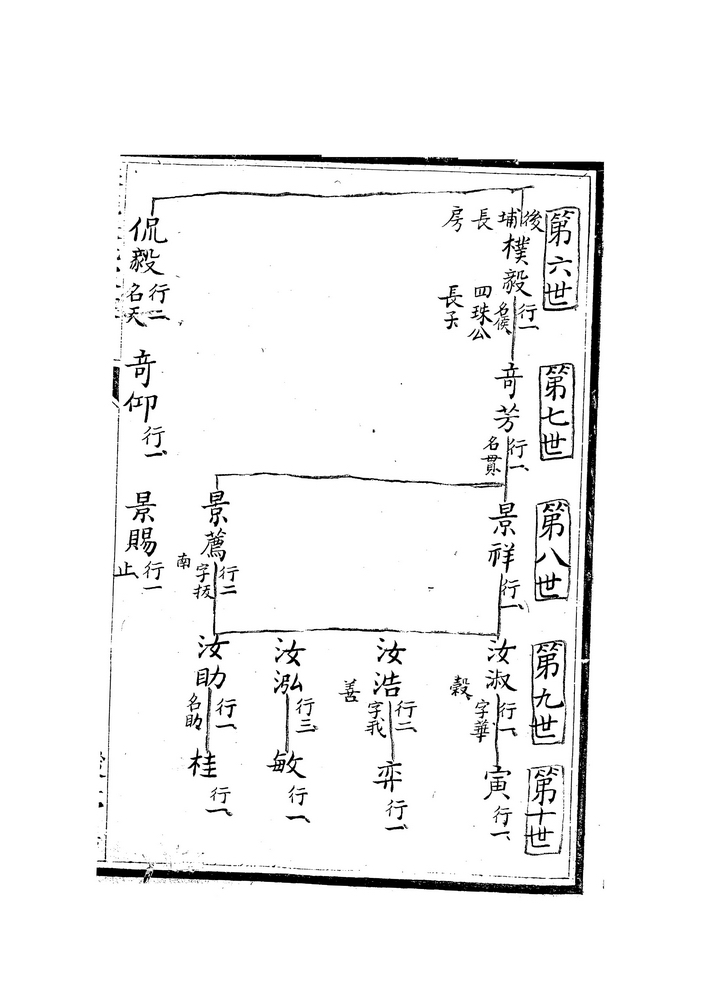 第六世
後埔長房
樸毅
行一
名侯
四珠公
長子
侃毅
行二
名天
第七世
奇芳
行一
名貫
奇仰
行一
第八世
景祥
行一
景薦
行二
字拔
南
景賜
行一
止
第九世
汝淑
行一
字華
穀
汝浩
行二
字我
善
汝泓
行三
汝助
行一
名助
第十世
寅
行一
弈
行一
敏
行一
桂
行一